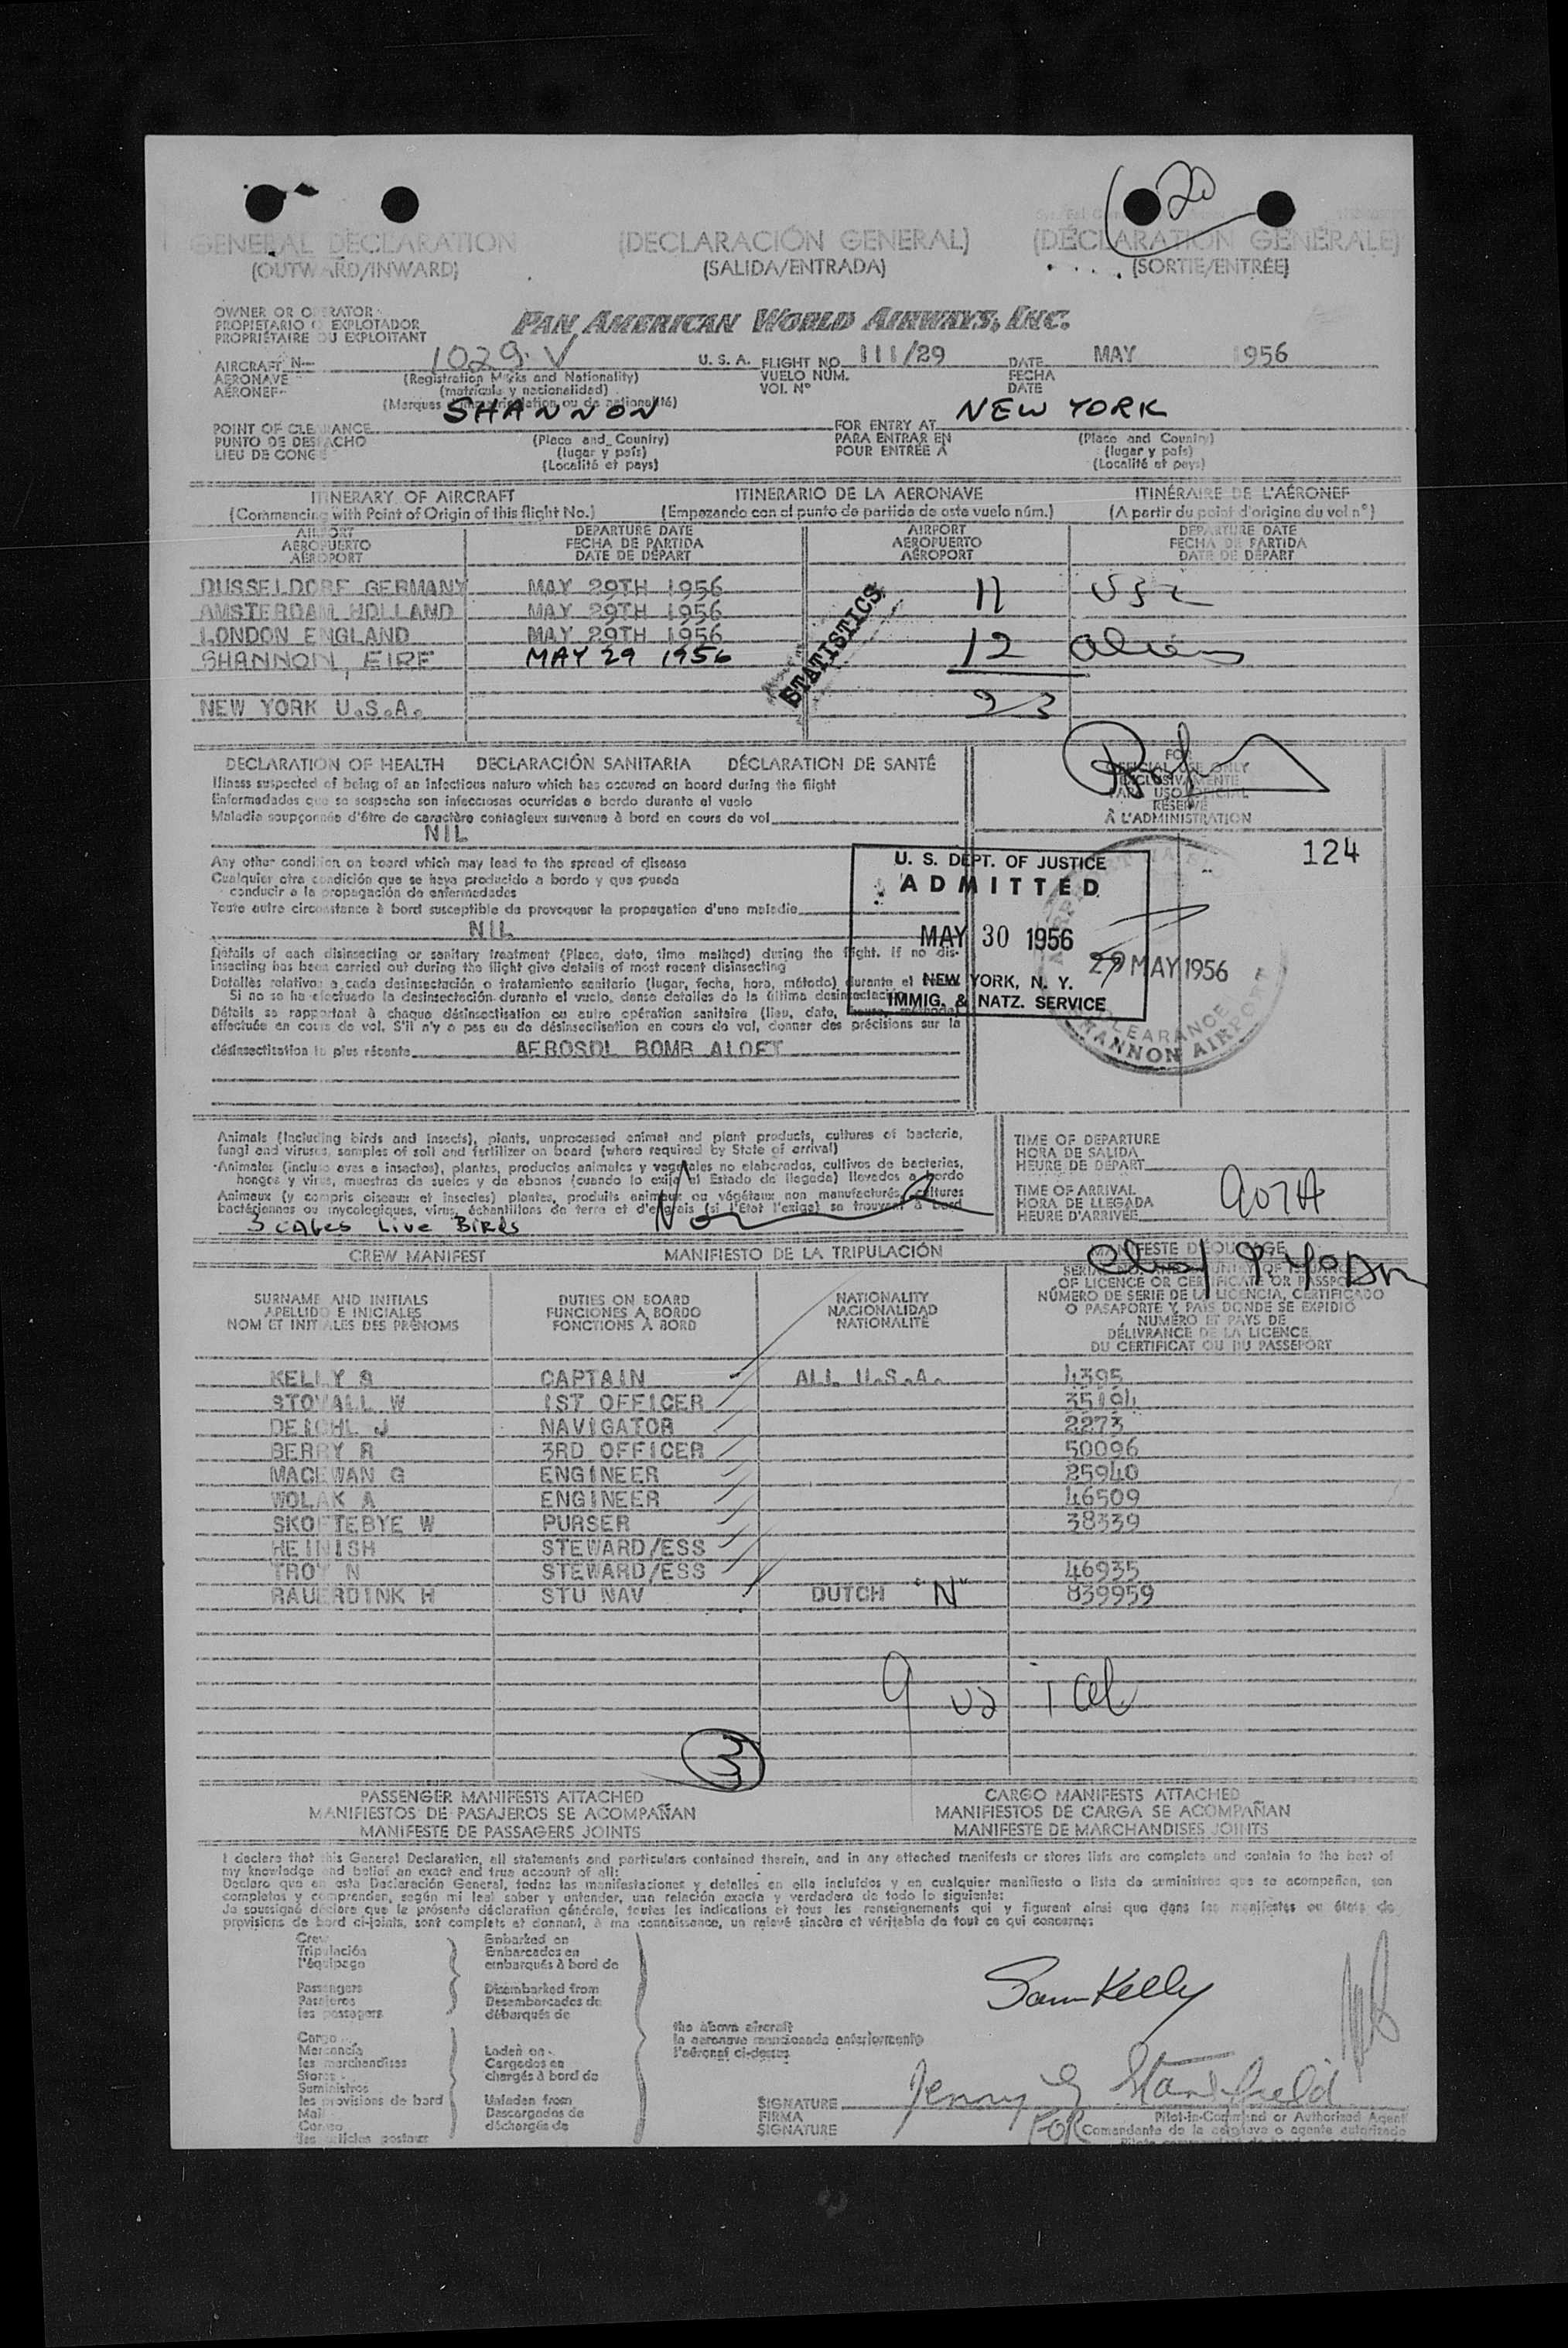 20
GENERAL DECLARATION (DECLARACIÓN GENERAL) (DÉCLARATION GÉNÉRALE)
(OUTWARD/INWARD) (SALIDA/ENTRADA) (SORTIE/ENTRÉE)
OWNER OR OPERATOR
PROPIETARIO O EXPLOTADOR PAN AMERICAN WORLD AIRWAYS, INC.
PROPRIÉTAIRE OU EXPLOITANT
AIRCRAFT N- 1029 V U. S. A. FLIGHT NO. 111/29 DATE MAY 1956
AERONAVE (Registration Marks and Nationality) VUELO NÚM. FECHA
AÉRONEF (matrícula y nacionalidad) VOL Nº DATE
(Marques d'immatriculation ou de nationalité)
SHANNON NEW YORK
POINT OF CLEARANCE FOR ENTRY AT
PUNTO DE DESPACHO (Place and Country) PARA ENTRAR EN (Place and Country)
LIEU DE CONGÉ (lugar y país) POUR ENTRÉE A (lugar y país)
(Localité et pays) (Localité et pays)
ITINERARY OF AIRCRAFT ITINERARIO DE LA AERONAVE ITINÉRAIRE DE L'AÉRONEF
(Commencing with Point of Origin of this flight No.) (Empezando con el punto de partida de este vuelo núm.) (A partir du point d'origine du vol nº)
AIRPORT DEPARTURE DATE AIRPORT DEPARTURE DATE
AEROPUERTO FECHA DE PARTIDA AEROPUERTO FECHA DE PARTIDA
AÉROPORT DATE DE DÉPART AÉROPORT DATE DE DÉPART
DUSSELDORF GERMANY MAY 29TH 1956 11
AMSTERDAM HOLLAND MAY 29TH 1956
LONDON ENGLAND MAY 29TH 1956 12 aliens
SHANNON, EIRE MAY 29 1956
STATISTICS
NEW YORK U.S.A. 23
DECLARATION OF HEALTH DECLARACIÓN SANITARIA DÉCLARATION DE SANTÉ
FOR OFFICIAL USE ONLY
EXCLUSIVAMENTE
PARA USO OFICIAL
RÉSERVÉ
À L'ADMINISTRATION
Illness suspected of being of an infectious nature which has occured on board during the flight
Enfermedades que se sospecha son infecciosas ocurridas a bordo durante el vuelo
Maladie soupçonnée d'être de caractère contagieux survenue à bord en cours de vol
NIL
124
Any other condition on board which may lead to the spread of disease
Cualquier otra condición que se haya producido a bordo y que pueda
conducir a la propagación de enfermedades
Toute autre circonstance à bord susceptible de provoquer la propagation d'une maladie
NIL
U. S. DEPT. OF JUSTICE
ADMITTED
MAY 30 1956
NEW YORK, N. Y.
IMMIG. & NATZ. SERVICE
29 MAY 1956
CLEARANCE
SHANNON AIRPORT
Details of each disinsecting or sanitary treatment (Place, date, time method) during the flight. If no dis-
insecting has been carried out during the flight give details of most recent disinsecting
Detalles relativos a cada desinsectación o tratamiento sanitario (lugar, fecha, hora, método) durante el
Si no se ha efectuado la desinsectación durante el vuelo, dense detalles de la última desinsectación
Détails se rapportant à chaque désinsectisation ou autre opération sanitaire (lieu, date, heure, méthode)
effectuée en cours de vol. S'il n'y a pas eu de désinsectisation en cours de vol, donner des précisions sur la
désinsectisation la plus récente AEROSOL BOMB ALOFT
Animals (including birds and insects), plants, unprocessed animal and plant products, cultures of bacteria,
fungi and viruses, samples of soil and fertilizer on board (where required by State of arrival)
Animales (incluso aves e insectos), plantas, productos animales y vegetales no elaborados, cultivos de bacterias,
hongos y virus, muestras de suelos y de abonos (cuando lo exija el Estado de llegada) llevados a bordo
Animaux (y compris oiseaux et insectes) plantes, produits animaux ou végétaux non manufacturés, cultures
bactériennes ou mycologiques, virus, échantillons de terre et d'engrais (si l'État l'exige) se trouvant à bord
3 CAGES LIVE BIRDS
TIME OF DEPARTURE
HORA DE SALIDA
HEURE DE DÉPART
TIME OF ARRIVAL
HORA DE LLEGADA 907A
HEURE D'ARRIVÉE
CREW MANIFEST MANIFIESTO DE LA TRIPULACIÓN MANIFESTE D'ÉQUIPAGE
SURNAME AND INITIALS DUTIES ON BOARD NATIONALITY
APELLIDO E INICIALES FUNCIONES A BORDO NACIONALIDAD
NOM ET INITIALES DES PRÉNOMS FONCTIONS À BORD NATIONALITÉ
OF LICENCE OR CERTIFICATE OR PASSPORT
NÚMERO DE SERIE DE LA LICENCIA, CERTIFICADO
O PASAPORTE Y PAÍS DONDE SE EXPIDIÓ
NUMÉRO ET PAYS DE
DÉLIVRANCE DE LA LICENCE
DU CERTIFICAT OU DU PASSEPORT
KELLY S CAPTAIN ALL U.S.A. 4395
STOVALL W 1ST OFFICER 35194
DEICHL J NAVIGATOR 2273
BERRY R 3RD OFFICER 50096
MACEWAN G ENGINEER 25940
WOLAK A ENGINEER 46509
SKOFTEBYE W PURSER 38339
HEINISH STEWARD/ESS
TROY N STEWARD/ESS 46935
RAUERDINK H STU NAV DUTCH "N" 839959
9 us 1 al
3
PASSENGER MANIFESTS ATTACHED CARGO MANIFESTS ATTACHED
MANIFIESTOS DE PASAJEROS SE ACOMPAÑAN MANIFIESTOS DE CARGA SE ACOMPAÑAN
MANIFESTE DE PASSAGERS JOINTS MANIFESTE DE MARCHANDISES JOINTS
I declare that this General Declaration, all statements and particulars contained therein, and in any attached manifests or stores lists are complete and contain to the best of
my knowledge and belief an exact and true account of all:
Declaro que en esta Declaración General, todas las manifestaciones y detalles en ella incluidos y en cualquier manifiesto o lista de suministros que se acompañen, son
completos y comprenden, según mi leal saber y entender, una relación exacta y verdadera de todo lo siguiente:
Je soussigné déclare que le présente déclaration générale, toutes les indications et tous les renseignements qui y figurent ainsi que dans les manifestes ou états de
provisions de bord ci-joints, sont complets et donnant, à ma connaissance, un relevé sincère et véritable de tout ce qui concerne:
Crew Embarked on
Tripulación Embarcados en
l'équipage embarqués à bord de
Passengers Disembarked from
Pasajeros Desembarcados de
les passagers débarqués de
Sam Kelly
the above aircraft
la aeronave mencionada anteriormente
l'aéronef ci-dessus
Cargo
Mercancía Laden on
les marchandises Cargados en
Stores chargés à bord de
Suministros
les provisions de bord Unladen from
Mail Descargados de
Correo déchargés de
les articles postaux
SIGNATURE Jenny G Stanfield
FIRMA Pilot-in-Command or Authorized Agent
SIGNATURE FOR Comandante de la aeronave o agente autorizado